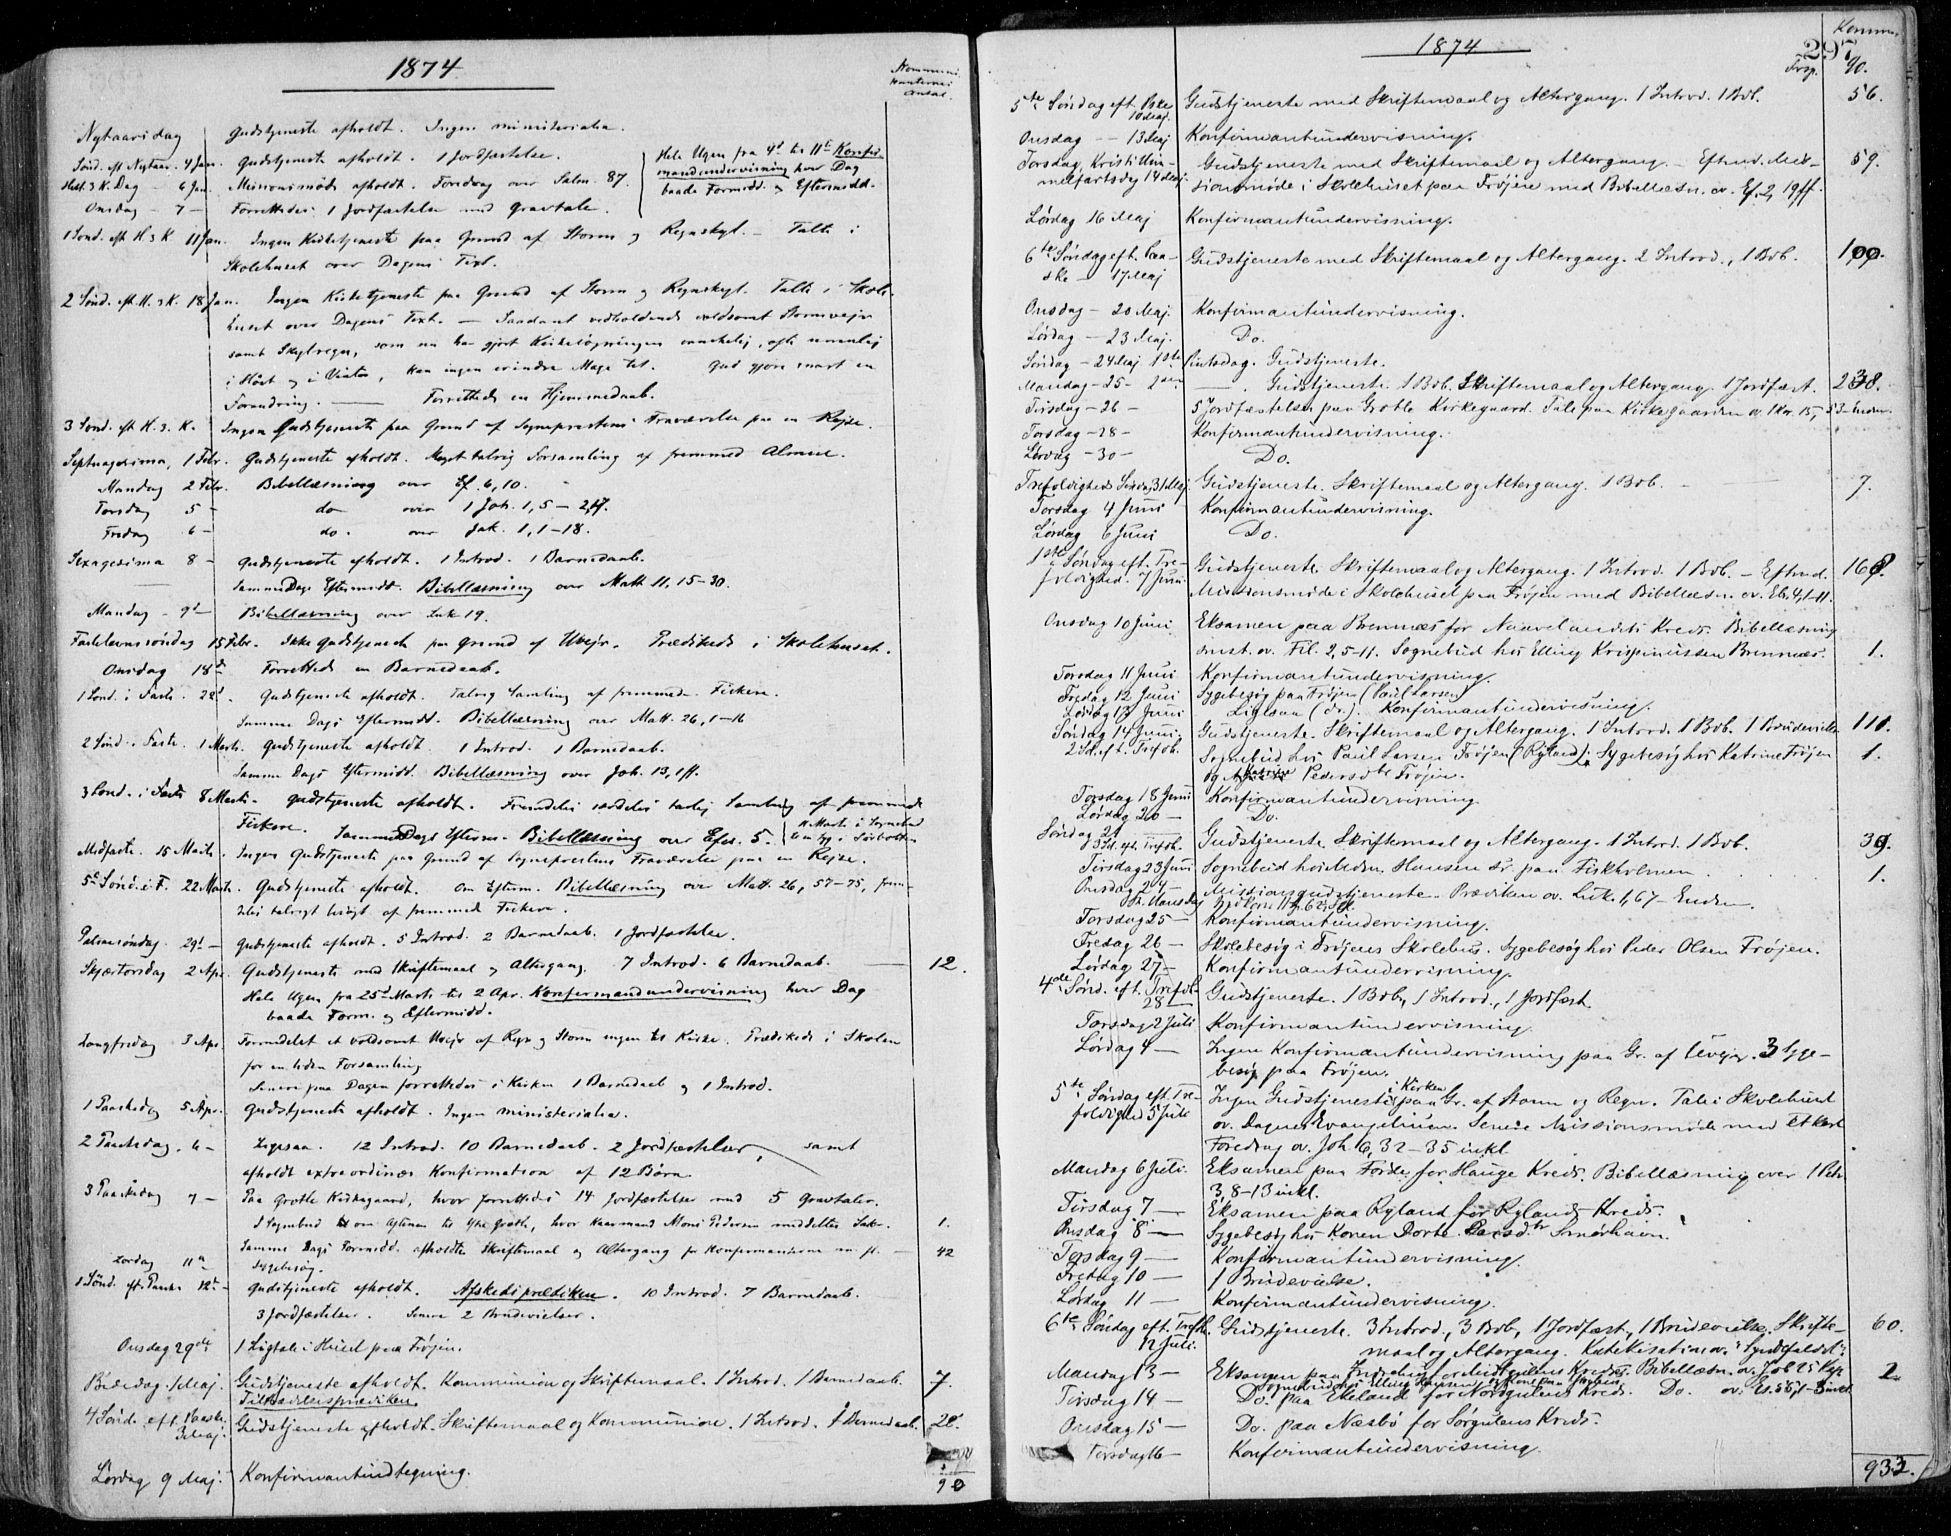 1874
Kommuni-
kanternes
Antal.
Nytaarsdag Gudstjeneste afholdt. Ingen ministerialia.
Sönd. eft. Nytaar. 4 Jan. Gudstjeneste afholdt. 1 Jordfæstelse.
Hell. 3 K. Dag - 6 Jan. Missionsmöde afholdt. Foredrag over Salm. 87.
Onsdag - 7 - Forrettedes 1 Jordfæstelse med Gravtale.
Hele Ugen fra 4de til 11te Konfir-
mandundervisning hver Dag
baade Formidd. og Eftermidd.
1 Sönd. eft. H. 3 K. 11 Jan. Ingen Kirketjeneste paa Grund af Storm og Regnskyl. - Talte i
Skolehuset over Dagens Text.
2 Sönd. eft. H. 3 K. 18 Jan. Ingen Kirketjeneste paa Grund af Storm og Regnskyl. Talte i Skole-
huset over Dagens Text. - Saadant vedholdende voldsomt Stormveir
samt Skylregn, som nu har gjort Kirkesögningen vanskelig, ofte umulig
i Höst og i Vinter, kan ingen erindre Mage til. Gud gjöre snart en
Forandring. - Forrettede en Hjemmedaab.
3 Sönd. eft. H. 3. K. Ingen Gudstjeneste paa Grund af Sognepræstens Fraværelse paa en Rejse.
Septuagesima, 1 Febr. Gudstjeneste afholdt. Meget talrig Forsamling af fremmed Almue.
Mandag 2 Febr. Bibellæsning over Ef. 6, 10.
Torsdag 5 - do over 1 Joh. 1, 5 - 2,
Fredag 6 - do. over Jak. 1, 1-18.
Sexagesima 8 - Gudstjeneste afholdt. 1 Introd. 1 Barnedaab.
Samme Dags Eftermidd. Bibellæsning over Matth. 11, 15-30.
Mandag - 9d - Bibellæsning over Luk. 19.
Fastelavnssöndag 15 Febr. Ikke Gudstjeneste paa Grund af Uvejr. Prædikede i Skolehuset.
Onsdag 18d Forrettede en Barnedaab.
1 Sönd. i Faste. 22d. Gudstjeneste afholdt. Talrig Samling af fremmede Fiskere.
Samme Dags Eftermidd. Bibellæsning over Matt. 26, 1-16
2 Sönd. i Faste. 1 Marts. Gudstjeneste afholdt. 1 Introd. 1 Barnedaab.
Samme Dags Eftermidd. Bibellæsning over Joh. 13, 1 ff.
3 Sönd. i Faste 8 Marts. Gudstjeneste afholdt. Fremdeles talrig Samling af fremmede
Fiskere. Samme Dags Efterm. Bibellæsning over Efes. 5.
Midfaste. 15 Marts. Ingen Gudstjeneste paa Grund af Sognepræstens Fraværelse paa en Rejse.
5te Sönd. i F. 22 Marts. Gudstjeneste afholdt. Om Efterm. Bibellæsning over Matt. 26, 57-75, frem-
deles talrigt besögt af fremmede Fiskere.
Palmesöndag. 29d - Gudstjeneste afholdt. 5 Introd. 2 Barnedaab. 1 Jordfæstelse.
Skjærtorsdag 2 Apr. Gudstjeneste med Skriftemaal og Altergang. 7 Introd. 6 Barnedaab. 12.
Hele Ugen fra 25d Marts til 2 Apr. Konfirmandundervisning hver Dag
baade Form. og Eftermidd.
Langfredag 3 Apr. Formedelst et voldsomt Uvejr af Regn og Storm ingen til Kirke. Prædikede i Skolen
for en liden Forsamling
Senere paa Dagen forrettedes i Kirken 1 Barnedaab og 1 Introd.
1 Paaskedag 5 Apr. Gudstjeneste afholdt. Ingen ministerialia.
2 Paaskedag. 6 - Ligesaa. 12 Introd. 10 Barnedaab. 2 Jordfæstelser, samt
afholdt extraordinær Konfirmation af 12 Börn
3 Paaskedag 7 - Paa Grotle Kirkegaard, hvor forrettedes 14 Jordfæstelser med 5 Gravtaler.
I Sognebud om Aftenen til Ytre Grotle, hvor Kaarmand Mons Pedersen meddeltes Sakr. 1.
Samme Dags Formidd. afholdtes Skriftemaal og Altergang for Konfirmanderne m. fl. 42
Lördag 11te Sygebesög.
1 Sönd. eft. Paaske 12te Gudstjeneste afholdt. Afskedsprædiken. 10 Introd. 7 Barnedaab.
3 Jordfæstelser. Senere 2 Brudevielser.
Onsdag 29de 1 Ligtale i Huset paa Fröjen.
Bededag 1 Maj. Gudstjeneste afholdt. Kommunion og Skriftemaal. 1 Introd. 1 Barnedaab. 7.
Tiltrædelsesprædiken
4 Sönd. eft. Paaske 3 Maj. Gudstjeneste afholdt. Skriftemaal og Kommunion. 1 Introd. Barnedaab. 28.
Lördag 9 Maj. Konfirmantindtegning.
90
1874
297
Kommu.
Trsp. 90.
5te Söndag eft. Paaske 10 Maj. Gudstjeneste med Skriftemaal og Altergang. 1 Introd. 1 Bdb. 56.
Onsdag - 13 Maj Konfirmantundervisning.
Torsdag Kristi Him-
melfartsdag 14 Maj. Gudstjeneste med Skriftemaal og Altergang. - Eftmd. Mis- 59.
sionsmöde i Skolehuset paa Fröjen med Bibellæsn. ov. Ef. 2, 19 ff.
Lördag 16 Maj Konfirmantundervisning.
6te Söndag eft. Paa-
ske - 17 Maj Gudstjeneste med Skriftemaal og Altergang. 2 Introd., 1 Bdb. 199.
Onsdag - 20 Maj. Konfirmantundervisning.
Lördag - 23 Maj. Do.
Söndag - 24 Maj 1ste Pintsedag. Gudstjeneste.
Mandag - 25 - 2den - Gudstjeneste. 1 Bdb. Skriftemaal og Altergang. 1 Jordfæst. 238.
Tirsdag - 26 - 5 Jordfæstelser paa Grotle Kirkegaard. Tale paa Kirkegaarden ov. 1 Kor. 15, 53-Enden.
Torsdag - 28 - Konfirmantundervisning.
Lördag - 30 - Do.
Trefoldigheds Söndag 31 Maj Gudstjeneste. Skriftemaal og Altergang. 1 Bdb. 7.
Torsdag 4 Juni Konfirmantundervisning.
Lördag 6 Juni Do.
1ste Söndag eft. Tre-
foldighed. 7 Juni Gudstjeneste. Skriftemaal og Altergang. 1 Introd. 1 Bdb. - Eftmd. 168.
Missionsmöde i Skolehuset paa Fröjen med Bibellæsn. ov. Eb. 4, 1-11.
Onsdag 10 Juni Eksamen paa Bremnæs for Naavelandets Kreds. Bibellæsning
smst. ov. Fil. 2, 5-11. Sognebud hos Elling Krispinussen Bremnæs. 1.
Torsdag 11 Juni Konfirmantundervisning.
Fredag 12 Juni Sygebesög paa Fröjen (Paul Larsen)
Lördag 13 Juni Ligesaa (do.). Konfirmantundervisning.
Söndag 14 Juni.
2 Sd. eft. Trefdb. Gudstjeneste. Skriftemaal og Altergang. 1 Introd. 1 Bdb. 1 Brudevielse 111.
Sognebud hos Paul Larsen Fröjen (Ryland). Sygebesög hos Katrine Fröjen 1.
og Pedersdtr Fröjen.
Torsdag 18 Juni Konfirmantundervisning.
Lördag 20 - Do.
Söndag 21
3 Sd. eft. Trefdb. Gudstjeneste. Skriftemaal og Altergang. 1 Introd. 1 Bdb. 39.
Tirsdag 23 Juni Sognebud hos Mdm. Hansen Sr. paa Fiskholmen. 1.
Onsdag 24 -
St. Hansdag Missionsgudstjeneste. Prædiken ov. Luk. 1, 67 - Enden.
Torsdag 25 - Konfirmantundervisning.
Fredag 26 - Skolebesög i Fröjens Skolehus. Sygebesög hos Peder Olsen Fröjen.
Lördag 27 - Konfirmantundervisning.
4de Sönd. eft. Trefdb. 28 - Gudstjeneste. 1 Bdb., 1 Introd., 1 Jordfæst.
Torsdag 2 Juli Konfirmantundervisning.
Lördag 4 - Ingen Konfirmantundervisning paa Gr. af Uvejr. 3 Syge-
besög paa Fröjen.
5te Söndag eft. Tre-
foldighed 5 Juli Ingen Gudstjeneste i Kirken paa Gr. af Storm og Regn. Tale i Skolehuset
ov. Dagens Evangelium. Senere Missionsmöde med et kort
Foredrag ov. Joh. 6, 32-35 inkl.
Mandag 6 Juli. Eksamen paa Förde for Hauge Kreds. Bibellæsning over 1 Petr.
3, 8-13 inkl.
Tirsdag 7 - Eksamen paa Ryland for Rylands Kreds.
Onsdag 8 - Sygebesög hos Konen Dorte Larsdtr Smörhavn.
Torsdag 9 - Konfirmantundervisning.
Fredag 10 - 1 Brudevielse.
Lördag 11 - Konfirmantundervisning.
6te Söndag eft. Trefdb. 12 Juli. Gudstjeneste. 3 Introd., 3 Bdb., 1 Jordfæst., 1 Brudevielse. Skrifte- 60.
maal og Altergang. Katekisation ov. "Syndefaldet".
Mandag 13 - Eksamen paa for Midtgulens Kreds. Bibellæsn. ov. Job 25 Kap. 2
Tirsdag 14 - Do. paa Ekeland for Nordgulens Kreds. Do. ov. Es. 56, 1-8 inkl.
Onsdag 15 - Do. paa Næsbö for Sörgulens Kreds.
Torsdag 16 - Konfirmantundervisning.
932.